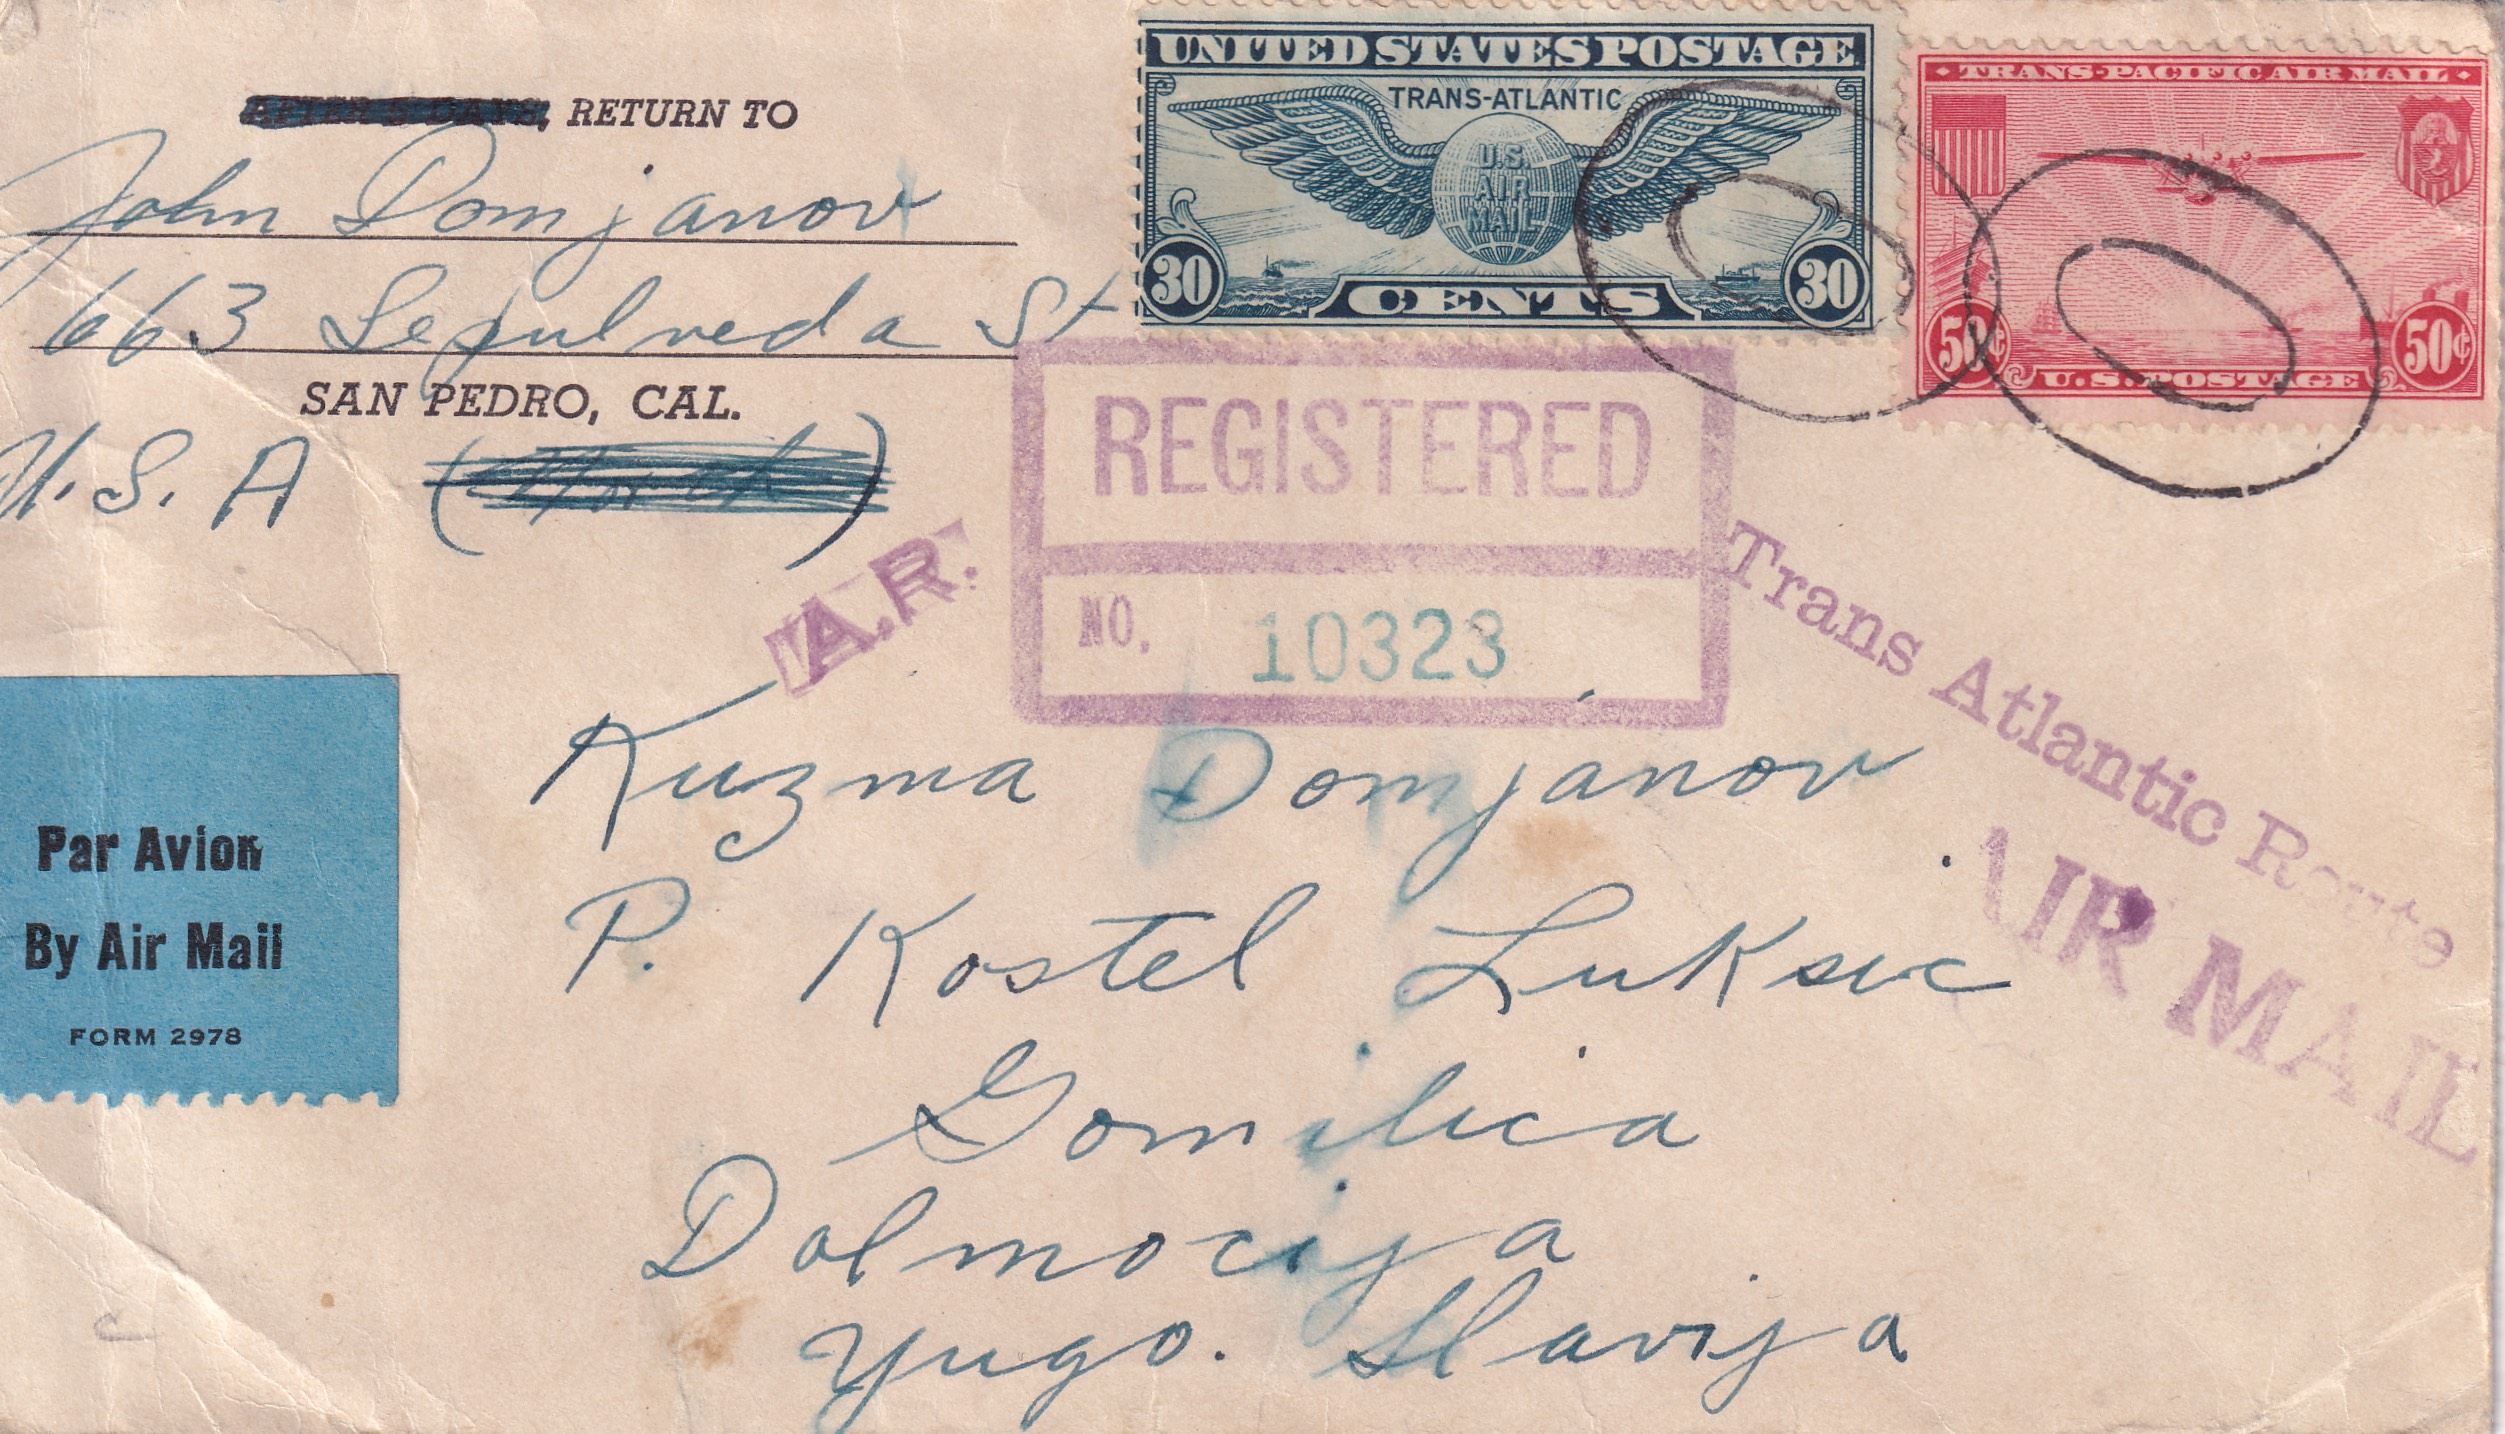 AFTER 5 DAYS, RETURN TO
John Domjanov
663 Sepulveda St
SAN PEDRO, CAL.
U.S.A
UNITED STATES POSTAGE
TRANS-ATLANTIC
U.S.
AIR
MAIL
30 CENTS 30
TRANS-PACIFIC AIR MAIL
50¢ U.S. POSTAGE 50¢
REGISTERED
NO. 10323
A.R.
Trans Atlantic Route
AIR MAIL
Par Avion
By Air Mail
FORM 2978
Kuzma Domjanov
P. Kastel Luksic
Gomilica
Dalmacija
Yugo. Slavija